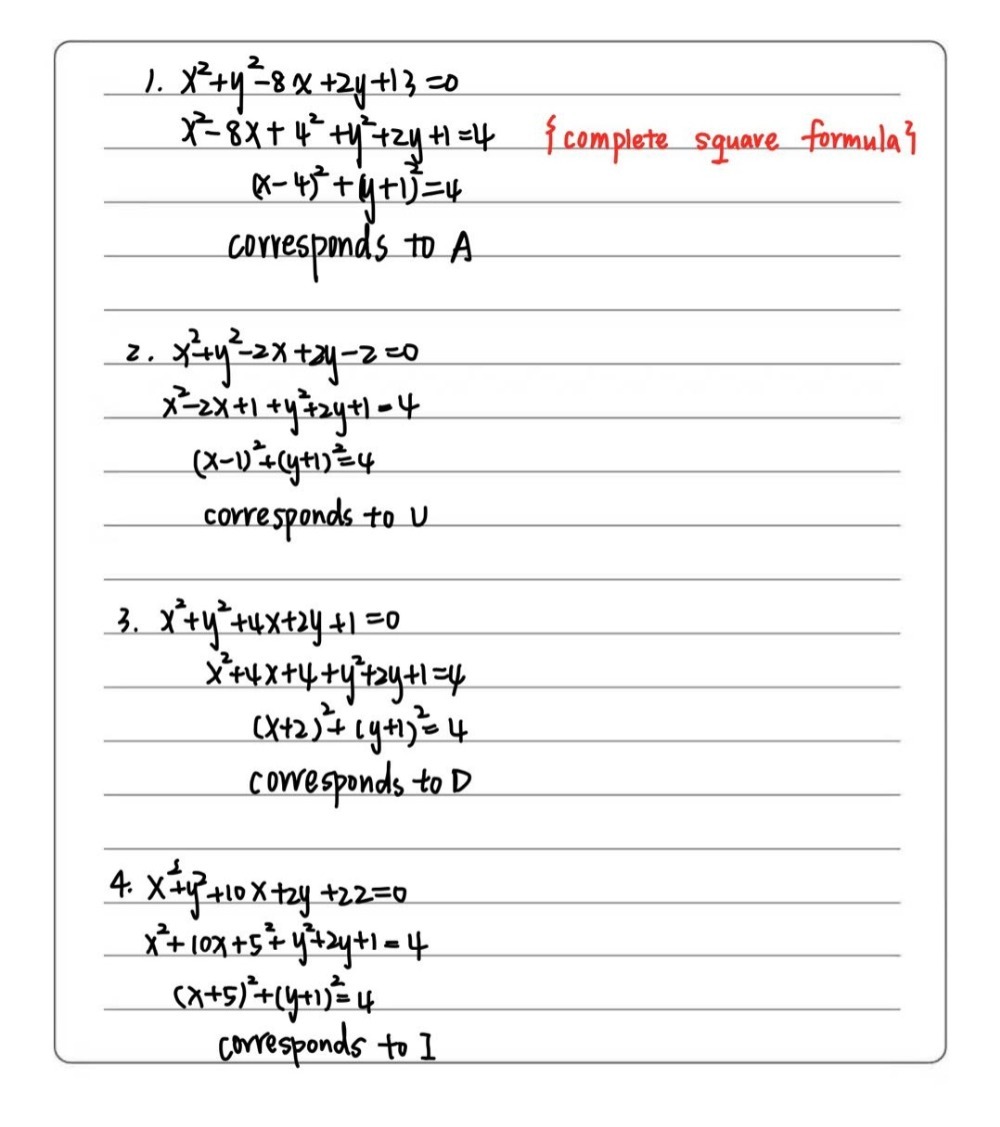 1. x²+y²-8x+2y+13=0
x²-8x+4²+y²+2y+1=4 {complete square formula}
(x-4)²+(y+1)²=4
corresponds to A
2. x²+y²-2x+2y-2=0
x²-2x+1+y²+2y+1=4
(x-1)²+(y+1)²=4
corresponds to U
3. x²+y²+4x+2y+1=0
x²+4x+4+y²+2y+1=4
(x+2)²+(y+1)²=4
corresponds to D
4. x²+y²+10x+2y+22=0
x²+10x+5²+y²+2y+1=4
(x+5)²+(y+1)²=4
corresponds to I